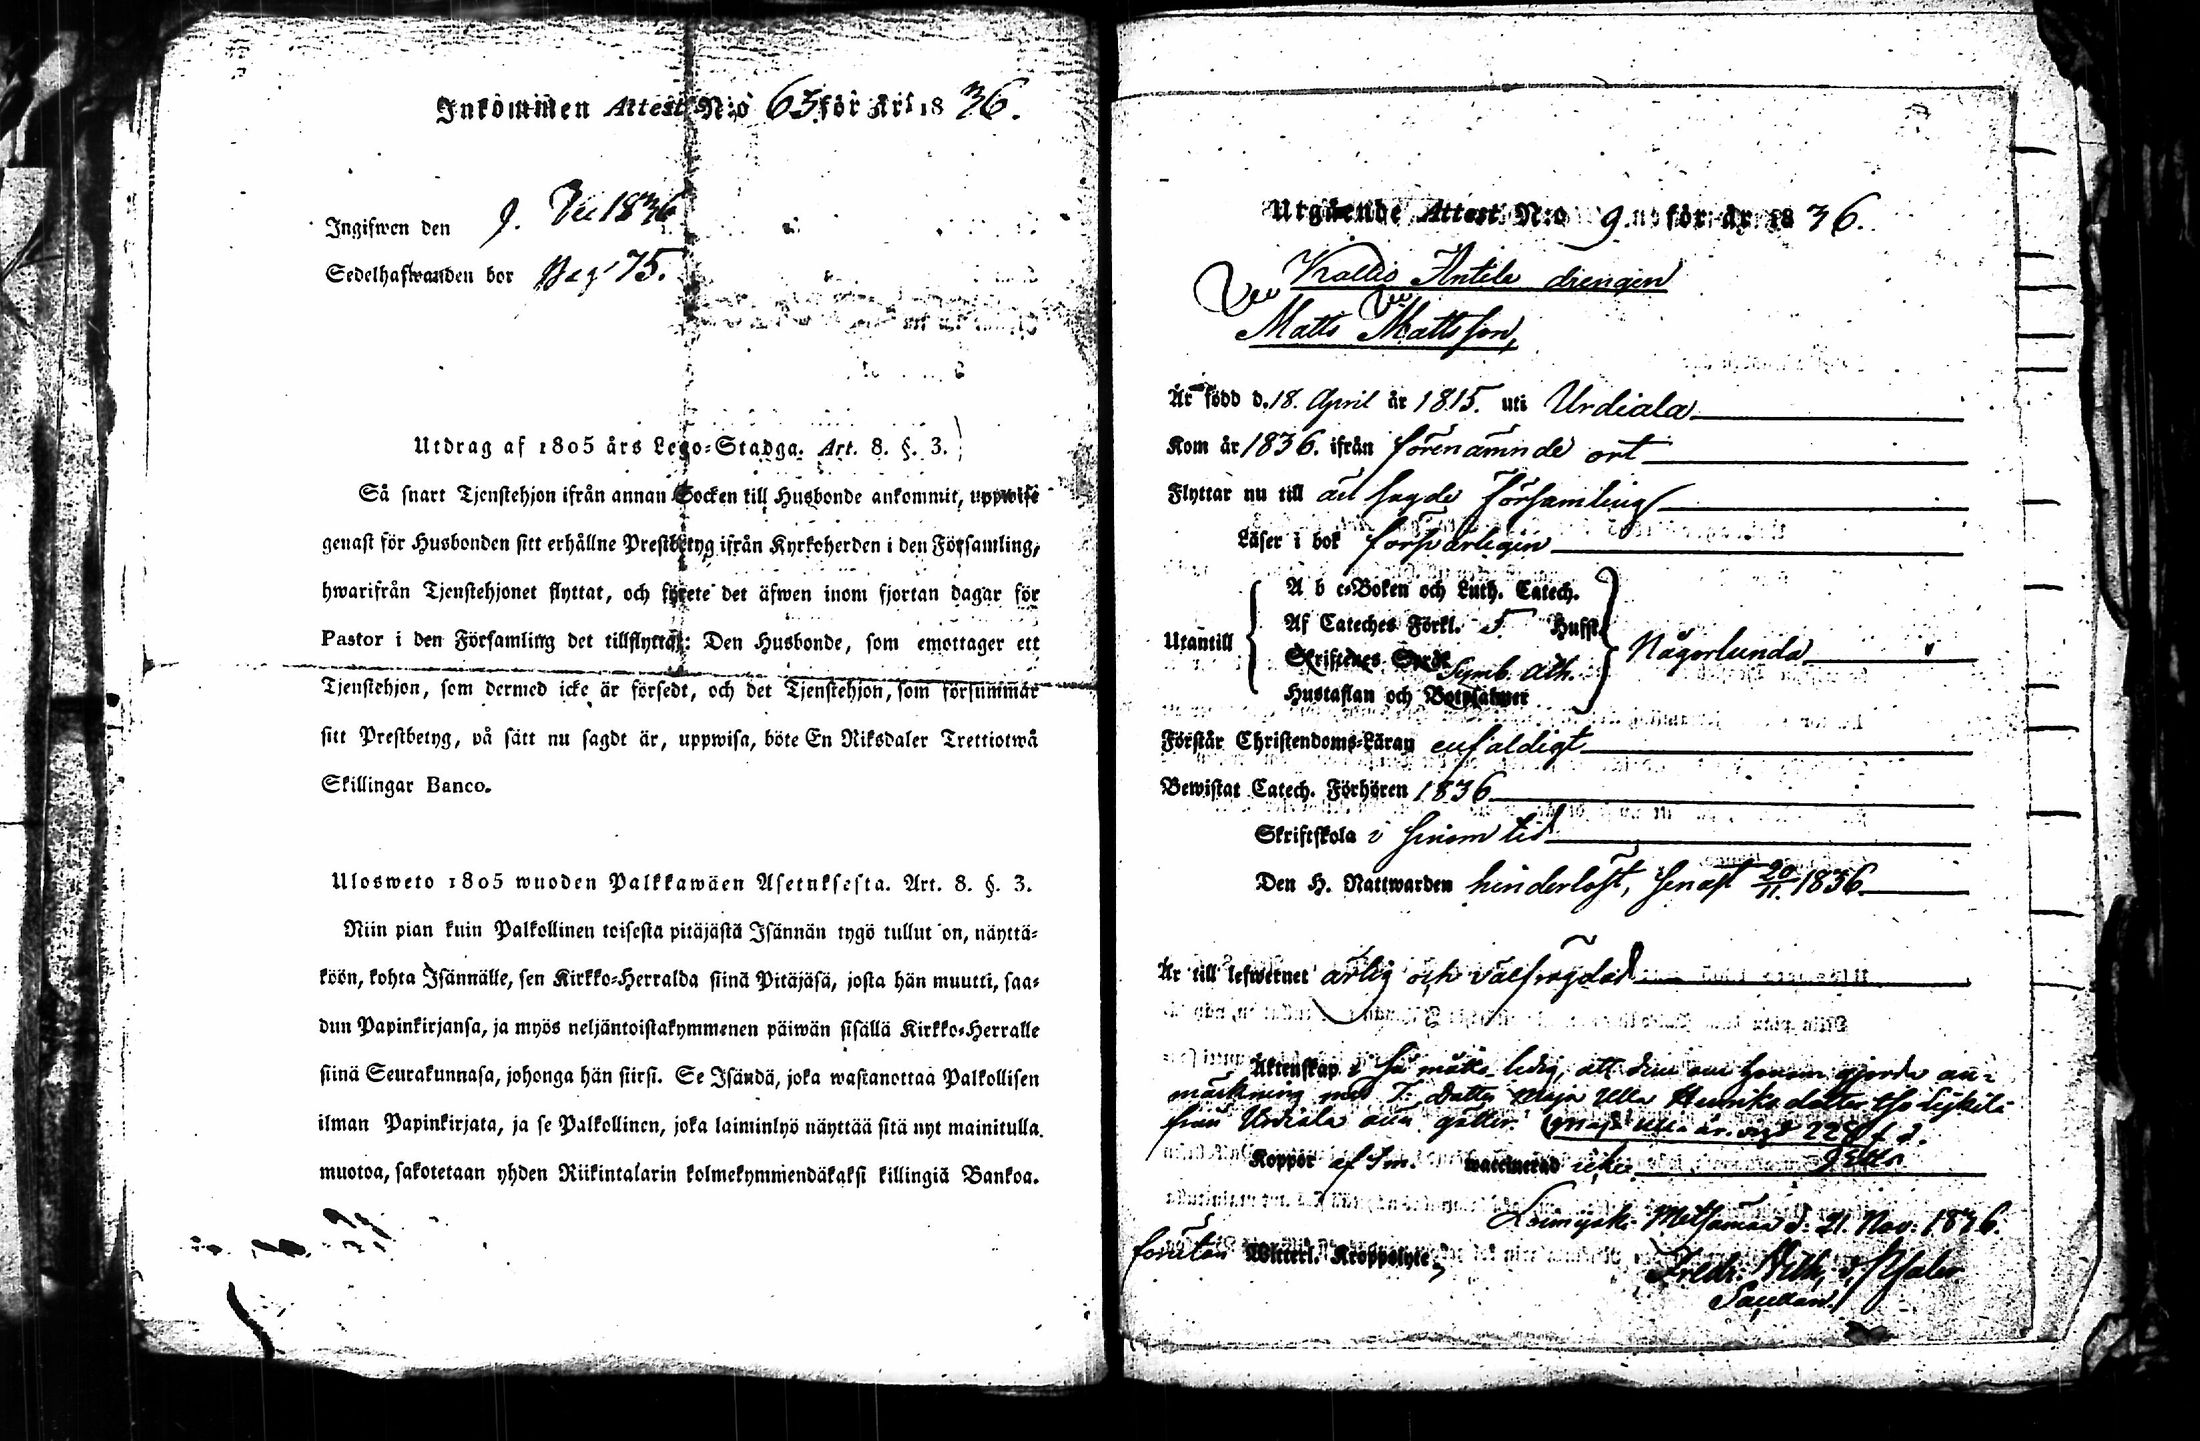 Inkommen Attest N:o 63 för år 1836.
Ingifwen den 9. Dec 1836
Sedelhafwanden bor Pag 75.
Utdrag af 1805 års Lego-Stadga. Art. 8. §. 3.
Så snart Tjenstehjon ifrån annan Socken till Husbonde ankommit, uppwise
genast för Husbonden sitt erhållne Prestbetyg ifrån Kyrkoherden i den Församling,
hwarifrån Tjenstehjonet flyttat, och förete det äfwen inom fjortan dagar för
Pastor i den Församling det tillflyttat: Den Husbonde, som emottager ett
Tjenstehjon, som dermed icke är försedt, och det Tjenstehjon, som försummar
sitt Prestbetyg, på sätt nu sagdt är, uppwisa, böte En Riksdaler Trettiotwå
Skillingar Banco.
Ulosweto 1805 wuoden Palkkawäen Asetuksesta. Art. 8. §. 3.
Niin pian kuin Palkollinen toisesta pitäjästä Isännän tygö tullut on, näyttä-
köön, kohta Isännälle, sen Kirkko-Herralda siinä Pitäjäsä, josta hän muutti, saa-
dun Papinkirjansa, ja myös neljäntoistakymmenen päiwän sisällä Kirkko-Herralle
siinä Seurakunnasa, johonga hän siirsi. Se Isändä, joka wastanottaa Palkollisen
ilman Papinkirjata, ja se Palkollinen, joka laiminlyö näyttää sitä nyt mainitulla
muotoa, sakotetaan yhden Riikintalarin kolmekymmendäkaksi killingiä Bankoa.
Utgående Attest N:o 9 för år 1836.
Kallio Antila drengen
Matts Mattsson,
Är född d. 18. April år 1815. uti Urdiala
Kom år 1836. ifrån förenämnde ort
Flyttar nu till än sagde Församling
Läser i bok försvarligen
A b c-Boken och Luth. Catech.
Af Cateches Förkl. 5 Hufst.
Utantill
Skriftenes Språk Symb. Ath. Någorlunda
Hustaflan och Botpsalmer
Förstår Christendoms-Läran enfaldigt
Bewistat Catech. Förhören 1836
Skriftskola i sinom tid
Den H. Nattwarden hinderlöst, senast 20/11. 1836
Är till lefwernet ärlig och välfrägdad
Äktenskap så måtto ledig, att den om honom gjorde an-
märkning med Maja Ulla Henriksdotter
från Urdiala
Koppor af sm. waccinerad icke
Metsämaa d. 21. Nov. 1836.
förutan Witterl. Kroppslyte
Fredr. Wilh.